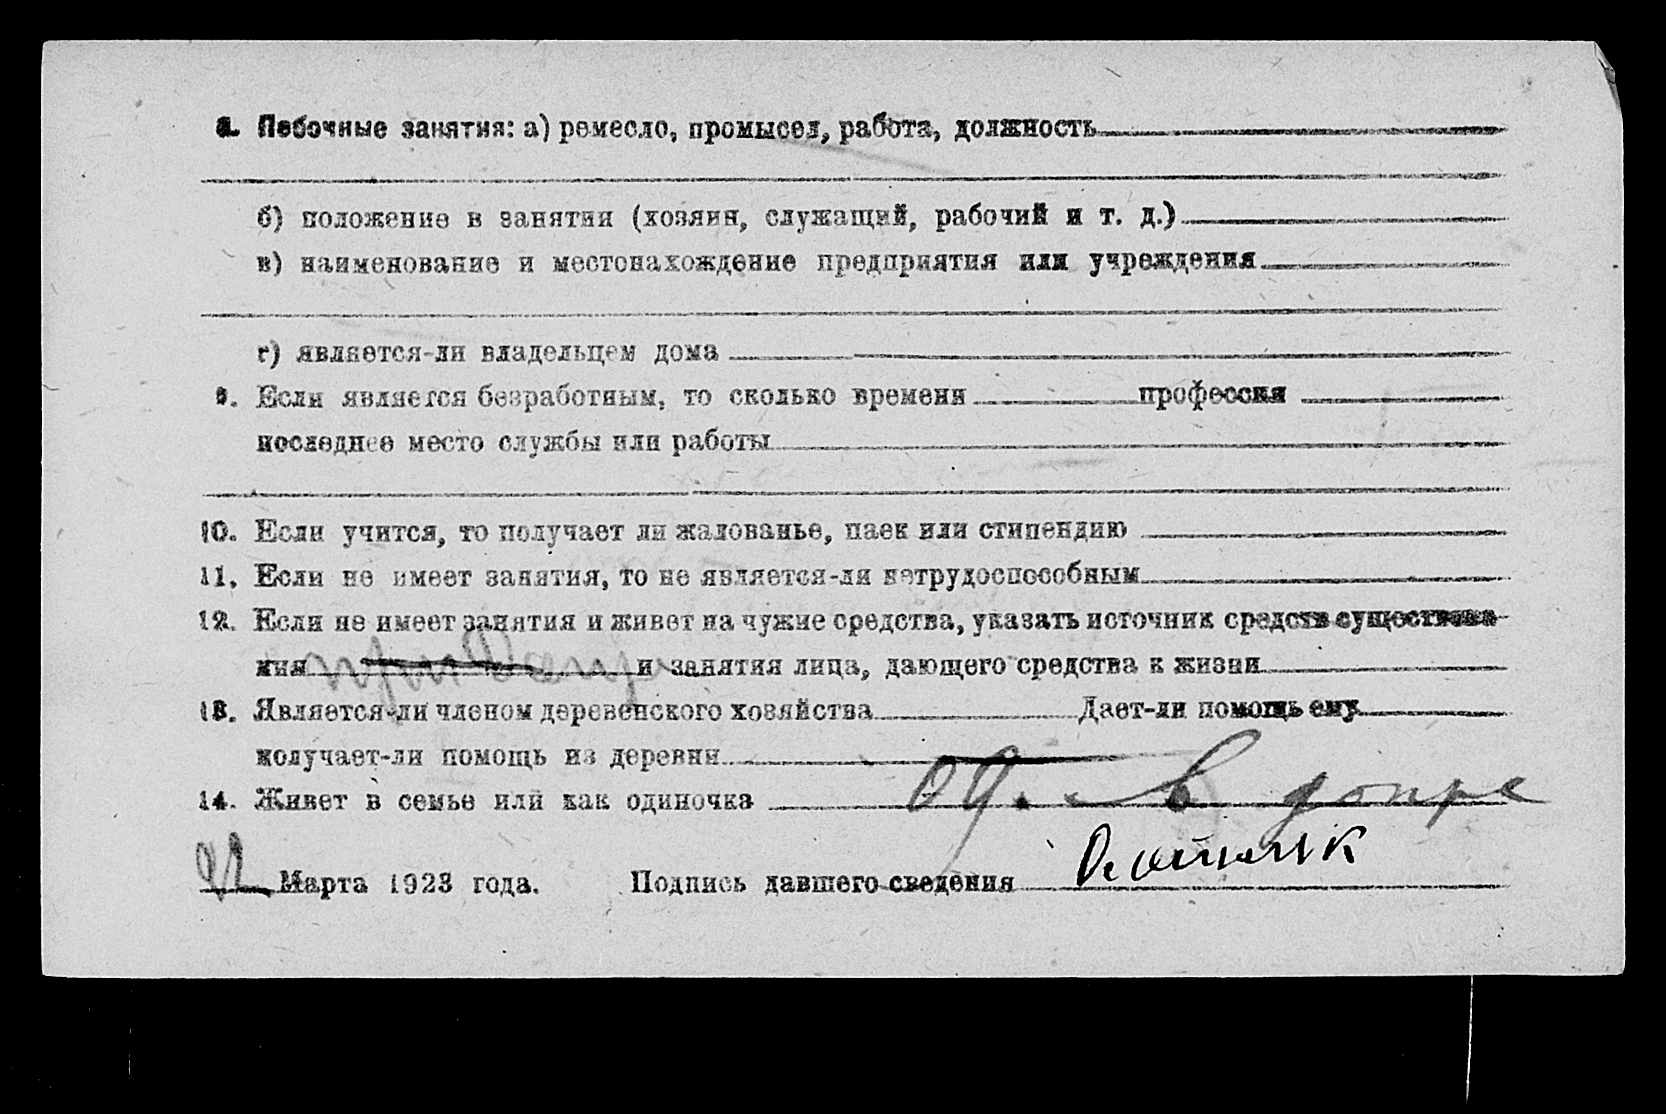 8. Побочные занятия: а) ремесло, промысел, работа, должность
б) положение в занятии (хозяин, служащий, рабочий и т. д.)
в) наименование и местонахождение предприятия или учреждения
г) является-ли владельцем дома
9. Если является безработным, то сколько времени профессия
последнее место службы или работы
10. Если учится, то получает ли жалованье, паек или стипендию
11. Если не имеет занятия, то не является-ли нетрудоспособным
12. Если не имеет занятия и живет на чужие средства, указать источник средств существова-
ния и занятия лица, дающего средства к жизни
13. Является-ли членом деревенского хозяйства Дает-ли помощь ему
получает-ли помощь из деревни
14. Живет в семье или как одиночка од. - в допре
Марта 1923 года. Подпись давшего сведения